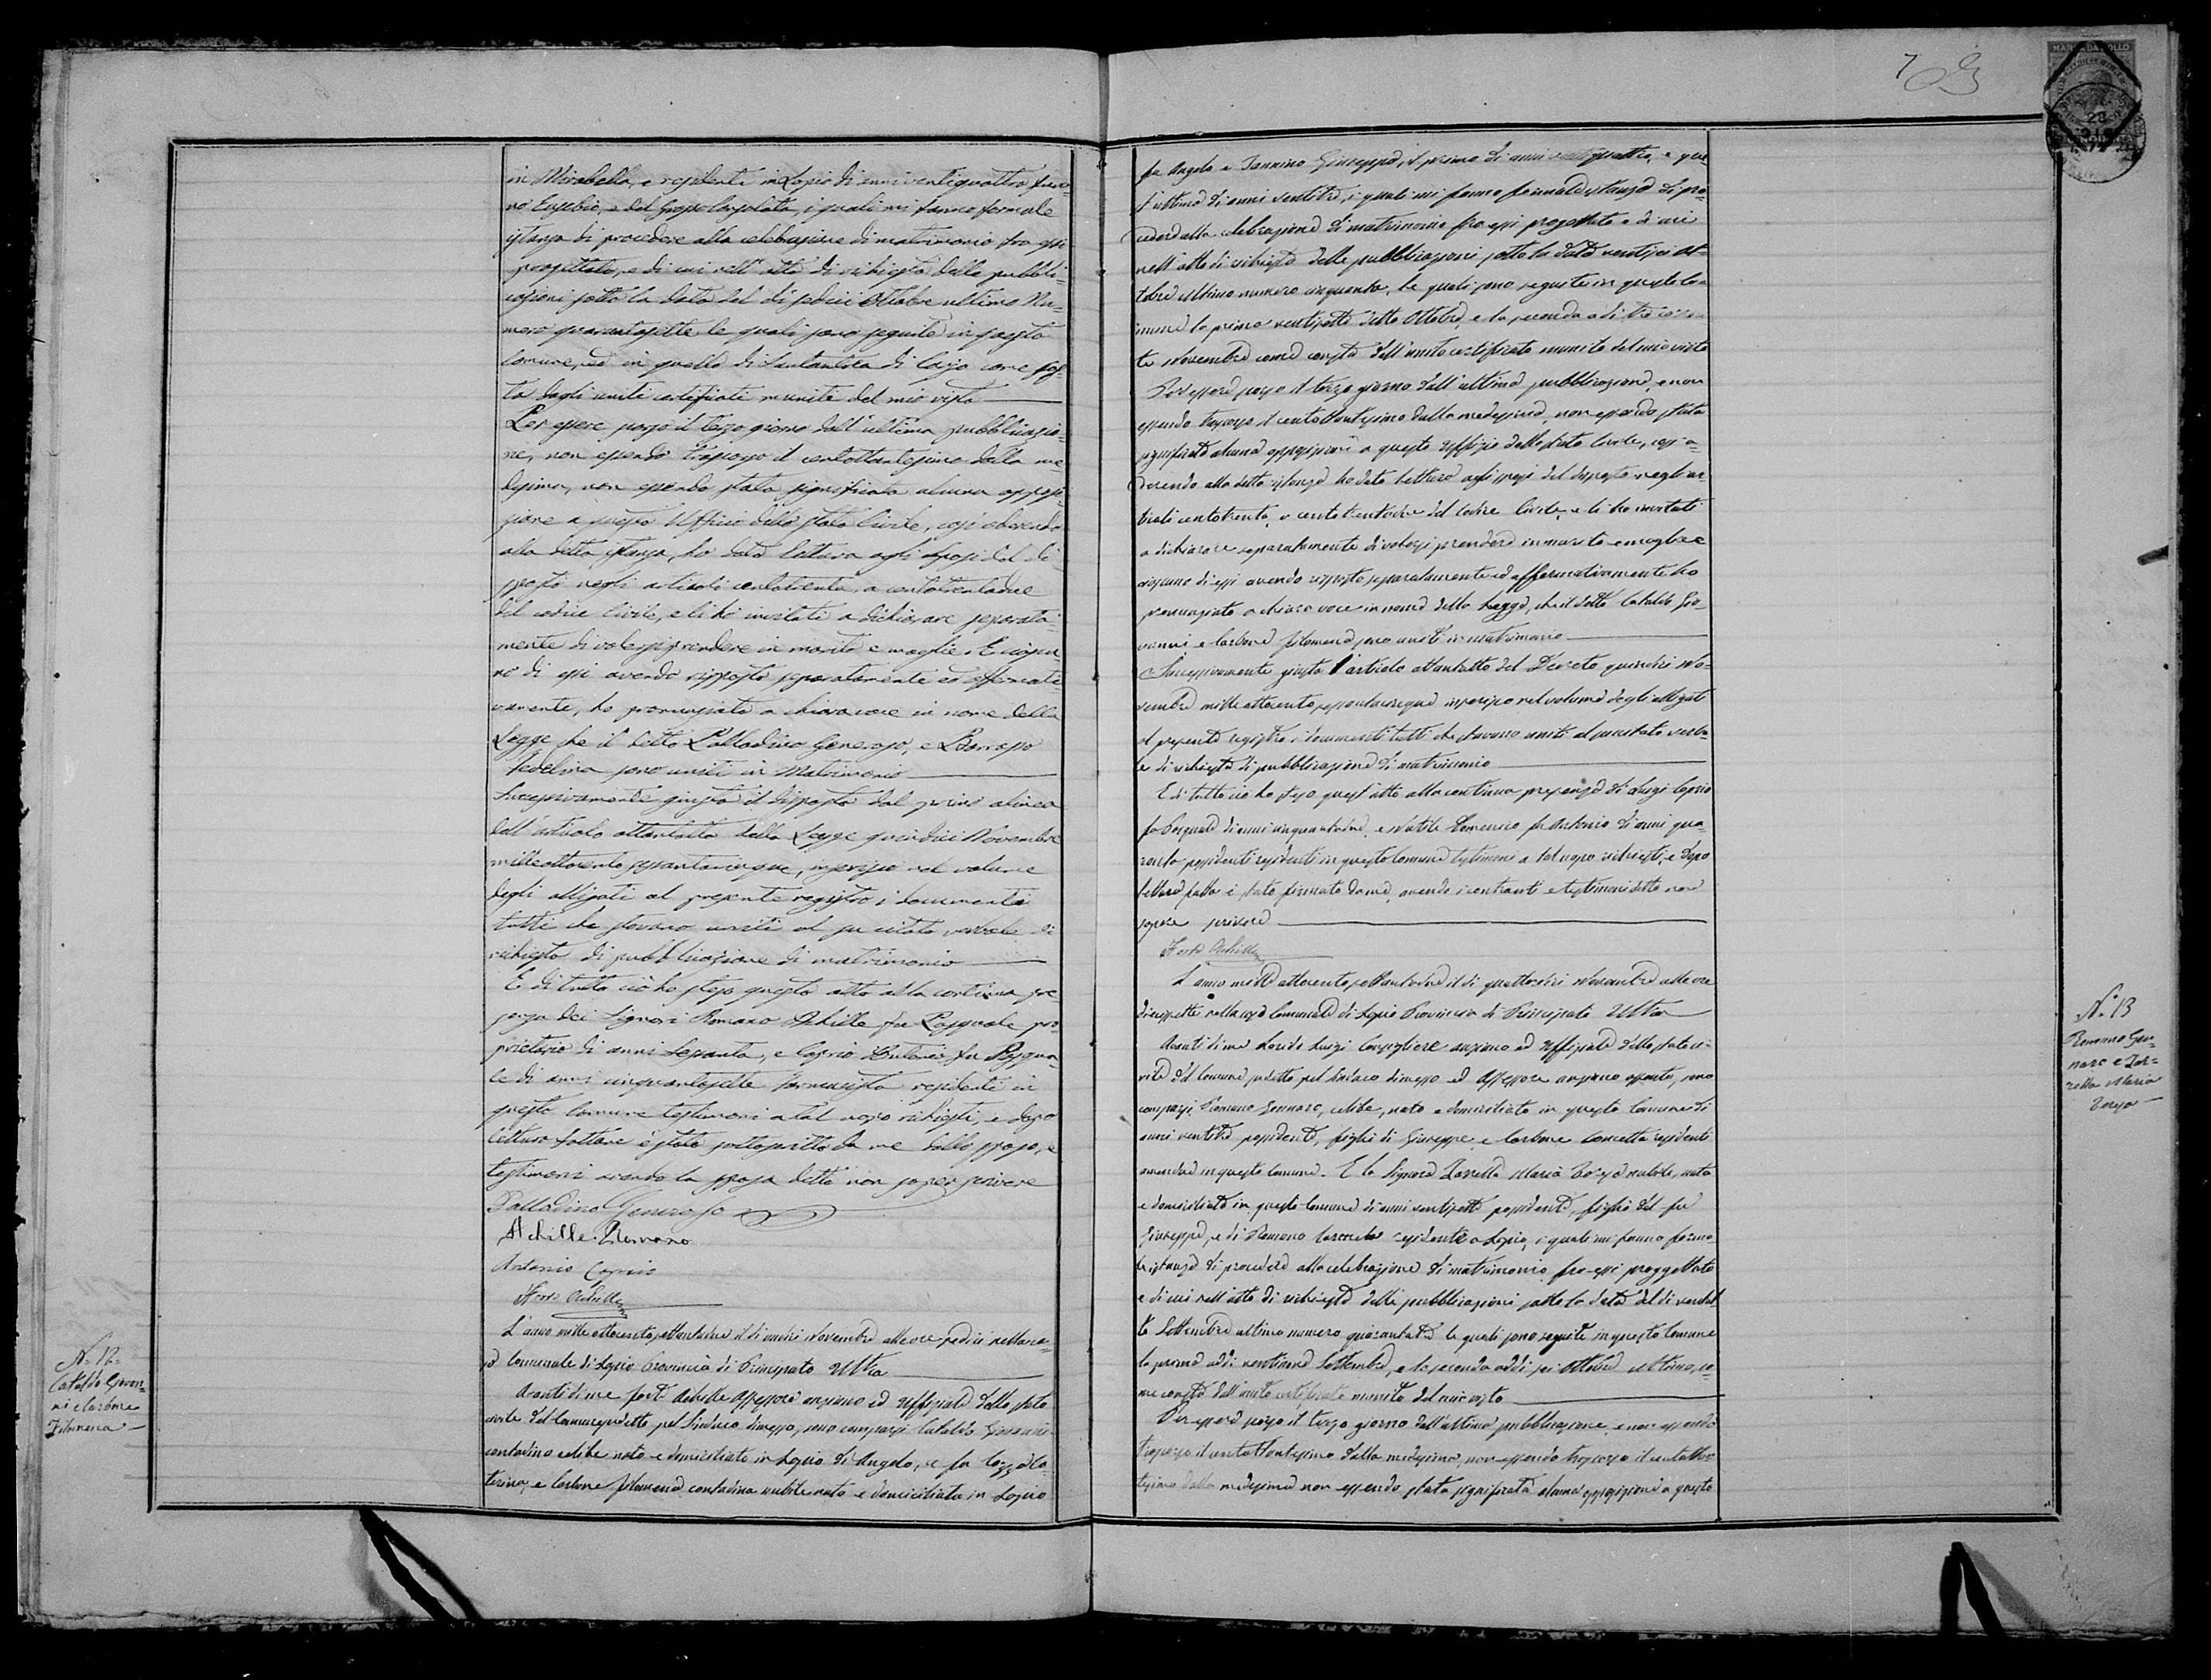 in Mirabella, e residente in Lapio di anni ventiquattro fu
no Eusebio, e del Grosso Lagolata, i quali mi fanno formale
istanza di procedere alla celebrazione di matrimonio fra essi
progettato, e di cui nell'atto di richiesta della pubbli-
cazioni sotto la data del dì sedici Ottobre ultimo Nu-
mero quarantasette le quali sono seguite in questo
Comune, ed in quello di Santandrea di Conza come
ta dagli uniti certificati muniti del mio visto
Per essere passo il terzo giorno dall'ultima pubblicazio-
ne, non essendo trascorso il centottantesimo dalla me-
desima, non essendo stata significata alcuna opposi-
zione a questo Ufficio dello stato Civile, così aderendo
alla detta istanza, ho dato lettura agli sposi del di-
sposto negli articoli centotrenta, a centotrentadue
del codice Civile, e li ho invitati a dichiarare separata-
mente di volersi prendere in marito e moglie. E ciascu-
no di essi avendo risposto separatamente ed affermati-
vamente, ho pronunziato a chiara voce in nome della
Legge che il detto Palladino Generoso, e
Fedelina sono uniti in Matrimonio
Successivamente giusta il disposto dal primo alinea
dell'articolo ottantotto della Legge quindici Novembre
milleottocento sessantacinque, inserisco nel volume
degli alligati al presente registro i documenti
tutti che stavano uniti al su citato verbale di
richiesta di pubblicazione di matrimonio
E di tutto ciò ho steso questo atto alla continua pre-
senza dei Signori Romano Achille fu Pasquale pro-
prietario di anni Sessanta, e Caprio Antonio fu Pasqua-
le di anni cinquantasette farmacista residenti in
questo Comune testimoni a tal uopo richiesti, e dopo
lettura fattane è stato sottoscritto da me dallo sposo, e
testimoni avendo la sposa detto non saper scrivere
Palladino Generoso
Achille Romano
Antonio Caprio
Forte Achille
N. 12.
Cataldo Giovan-
ni e Carbone
Filomena
L'anno mille ottocento settantadue il dì undici Novembre alle ore sedici nella ca-
sa Comunale di Lapio Provincia di Principato Ultra
Avanti di me Forte Achille Assessore anziano ed Uffiziale dello stato
civile del Comune sudetto pel Sindaco dimesso, sono comparsi Cataldo Giovanni
contadino celibe nato e domiciliato in Lapio di Angelo, e fu Ca-
terina, e Carbone Filomena contadina nubile nata e domiciliata in Lapio
7
fu Angelo e Iannino Giuseppa, il primo di anni ventiquattro, e que
st'ultima di anni ventitre, i quali mi fanno formale istanza di pro-
cedere alla celebrazione di matrimonio fra essi progettato e di cui
nell'atto di richiesta delle pubblicazioni sotto la data ventisei Ot-
tobre ultimo numero cinquanta, le quali sono seguite in questo Co-
mune la prima ventisette detto Ottobre, e la seconda a dì tre
te Novembre come consta dall'unito certificato munito del mio visto
Per essere passo il terzo giorno dall'ultima pubblicazione, e non
essendo trascorso il centottantesimo dalla medesima, non essendo stata
significata alcuna opposizione a questo Uffizio dello stato Civile, così a-
derendo alla detta istanza ho dato lettura agli sposi del disposto negli ar
ticoli centotrenta, a centotrentadue del Codice Civile, e li ho invitati
a dichiarare separatamente di volersi prendere in marito e moglie e
ciascuno di essi avendo risposto separatamente ed affermativamente ho
pronunziato a chiara voce in nome della Legge, che il detto Cataldo Gio-
vanni e Carbone Filomena sono uniti in matrimonio
Successivamente giusta l'articolo ottantotto del Decreto quindici No-
vembre mille ottocento sessantacinque inserisco nel volume degli alligati
al presente registro i documenti tutti che stavano uniti al su citato verba-
le di richiesta di pubblicazione di matrimonio
E di tutto ciò ho steso quest'atto alla continua presenza di Luigi Caprio
fu Pasquale di anni cinquantadue, e Natale Domenico fu Antonio di anni qua-
ranta possidenti residenti in questo Comune testimoni a tal uopo richiesti, e dopo
lettura fatta è stato firmato da me, avendo i contraenti e testimoni detto non
sapere scrivere
Forte Achille
N. 13
Romano Gen-
naro e Zar-
rella Maria
Teresa
L'anno mille ottocento settantadue il dì quattordici Novembre alle ore
diciassette nella casa Comunale di Lapio Provincia di Principato Ultra
Avanti di me Luigi Consigliere anziano ed Uffiziale dello stato ci-
vile del Comune sudetto pel Sindaco dimesso ed Assessore anziano assente, sono
comparsi Romano Gennaro, celibe, nato e domiciliato in questo Comune di
anni ventitre possidente, figlio di Giuseppe e Carbone Concetta residenti
amendue in questo Comune. E la Signora Zarrella Maria Teresa nubile, nata
e domiciliata in questo Comune di anni ventisette possidente, figlia del fu
Giuseppe, e di Romano Carmela residente a Lapio, i quali mi fanno forma-
le istanza di procedere alla celebrazione di matrimonio fra essi proggettato
e di cui nell'atto di richiesta delle pubblicazioni sotto la data del dì ventot
to Settembre ultimo numero quarantatre le quali sono seguite in questo Comune
la prima addì ventinove Settembre, e la seconda addì sei Ottobre ultimo, co-
me consta dall'unito certificato munito del mio visto
Per essere passo il terzo giorno dall'ultima pubblicazione, e non essendo
trascorso il centottantesimo dalla medesima, non essendo trascorso il centottan
tesimo dalla medesima non essendo stata significata alcuna opposizione a questo